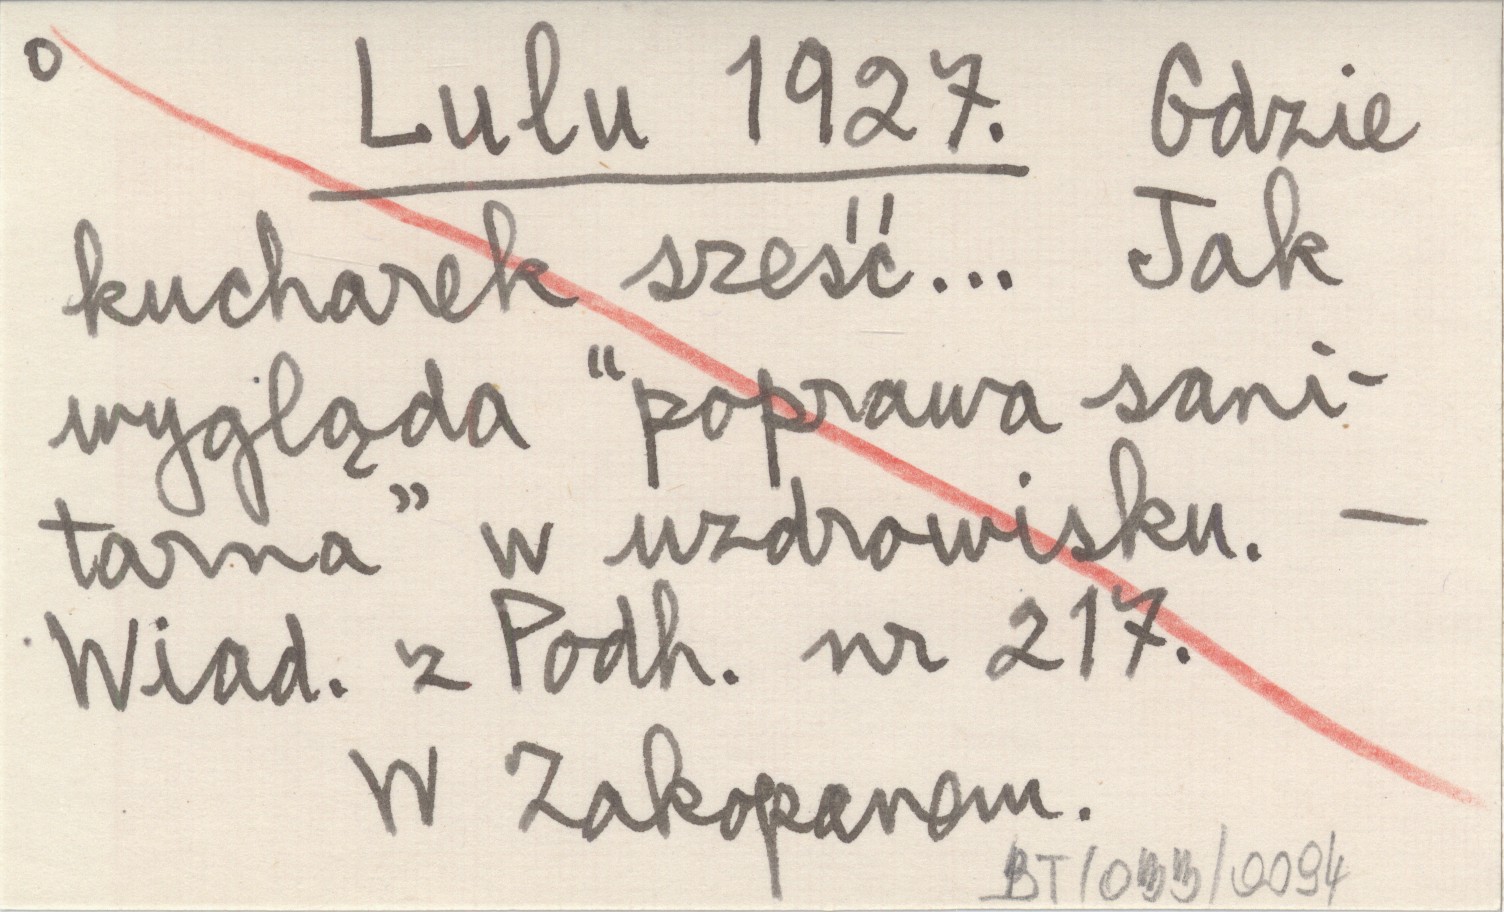 o Lulu 1927. Gdzie
kucharek sześć... Jak
wygląda "poprawa sani-
tarna" w uzdrowisku. —
Wiad. z Podh. nr 217.
W Zakopanem.
BT/033/0094